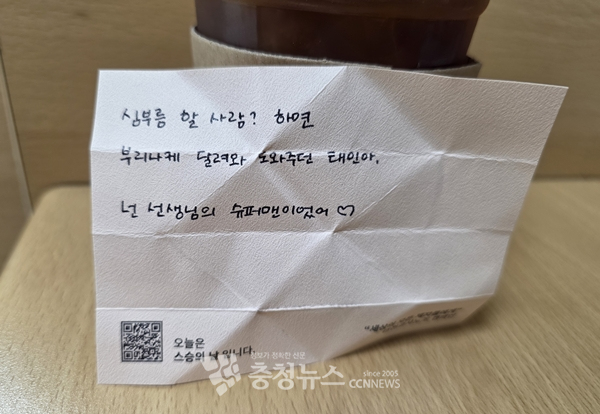 심부름 할 사람? 하면
부리나케 달려와 도와주던 태인아.
넌 선생님의 슈퍼맨이었어♡
오늘은
스승의 날 입니다.
정확한 신문
충청뉴스
since 2005
CCNNEWS